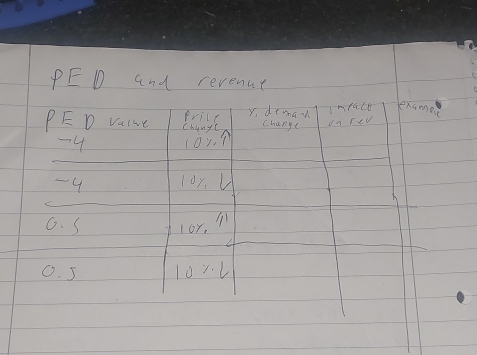 PED and revenue
PED value | Price change | % demand change | impact on rev | example
-4 | 10% ↑
-4 | 10% ↓
0.5 | 10% ↑
0.5 | 10% ↓